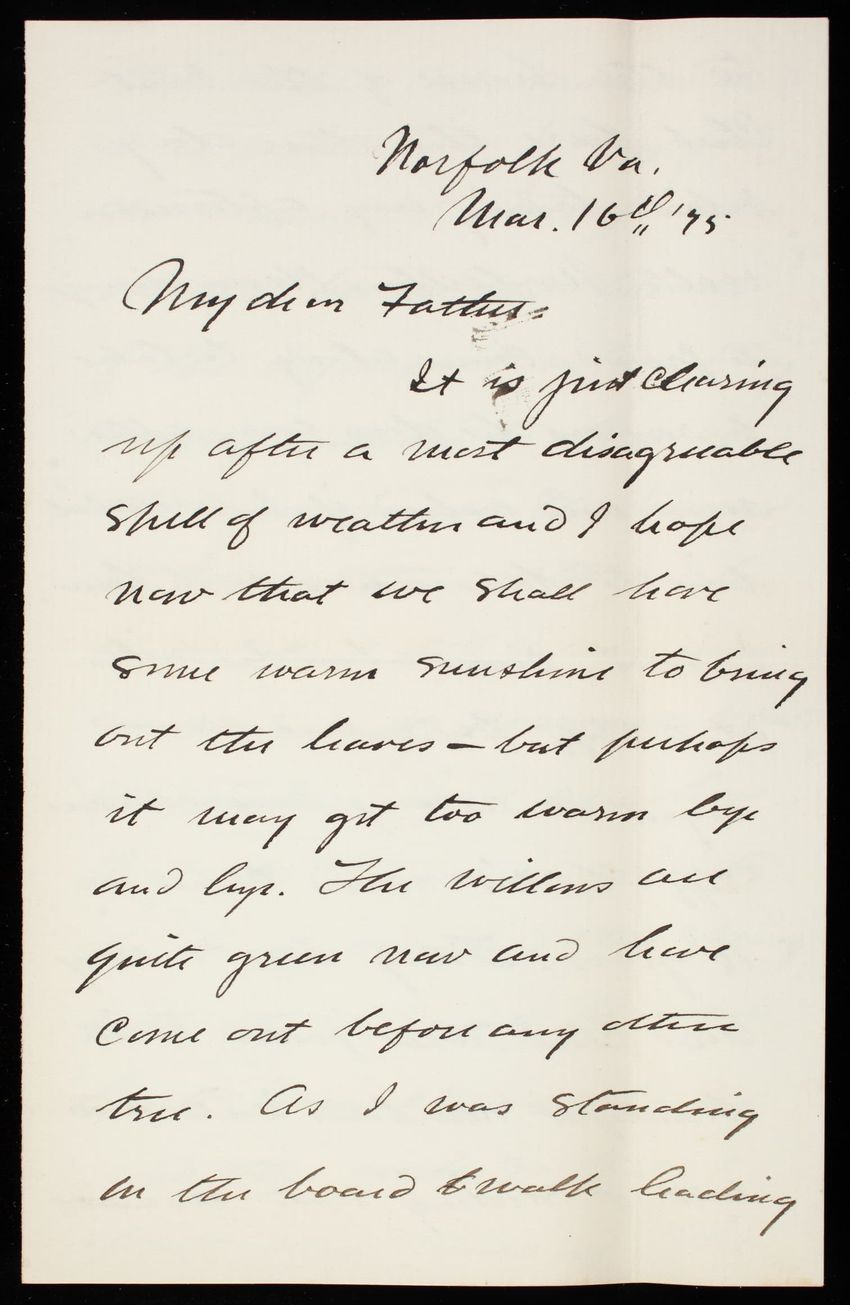 Norfolk Va.
Mar. 16th '75
My dear Father
It is just clearing
up after a most disagreeable
spell of weather and I hope
now that we shall have
some warm sunshine to bring
out the leaves – but perhaps
it may get too warm bye
and bye. The willows are
quite green now and have
come out before any other
tree. As I was standing
on the board walk leading